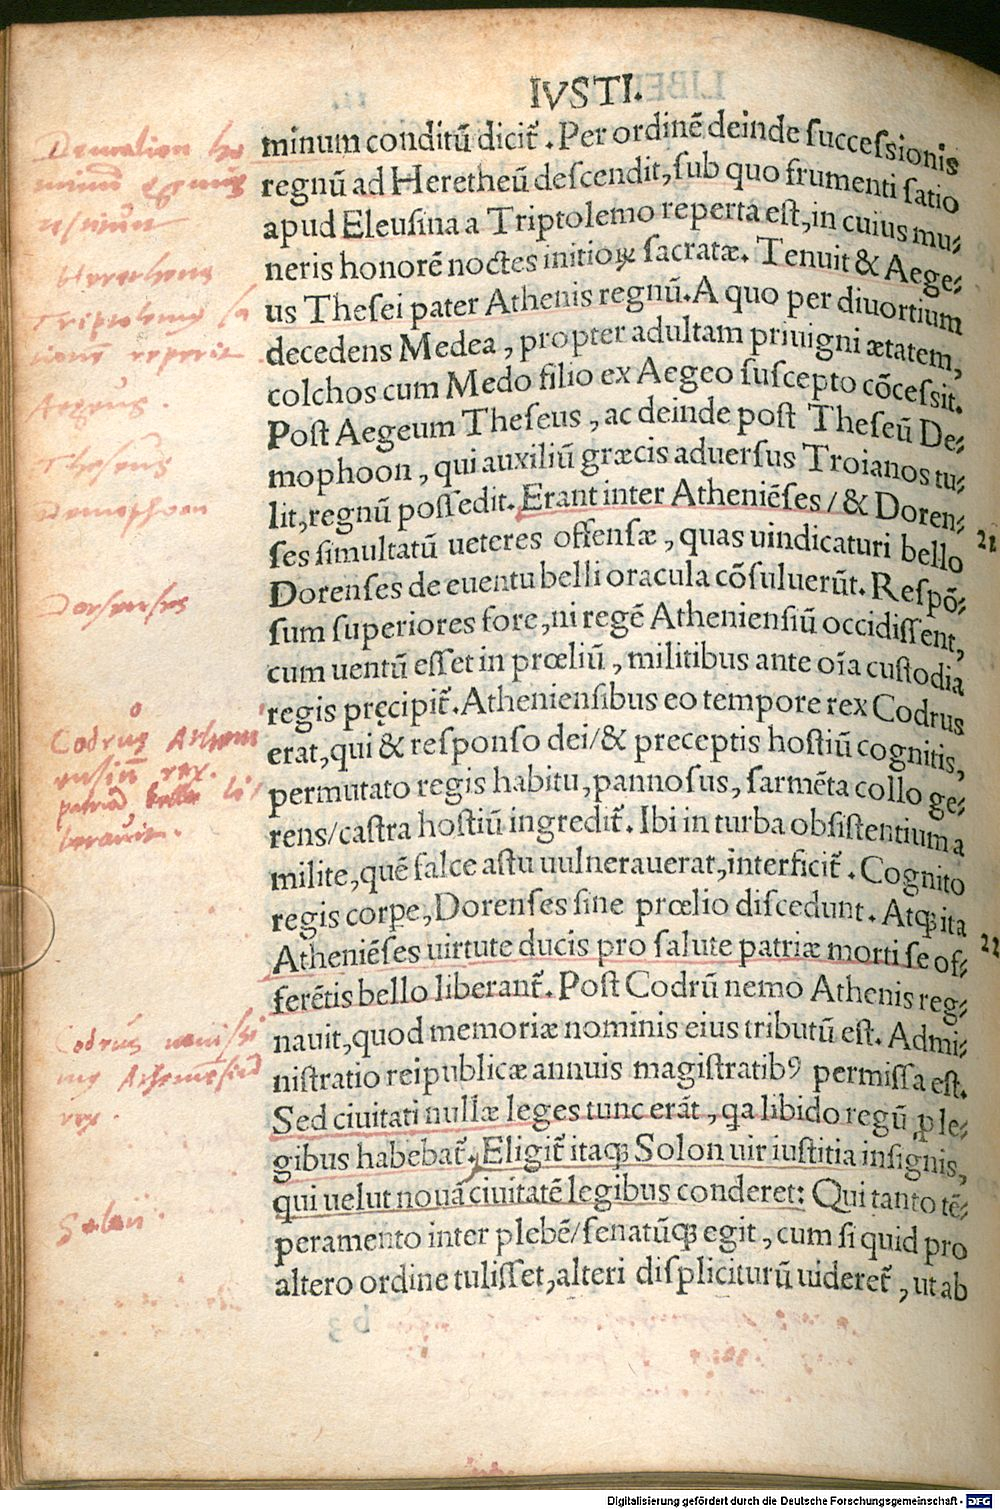 IVSTI.
minum conditū dicit̃. Per ordinē deinde successionis
regnū ad Heretheū descendit, sub quo frumenti satio
apud Eleusina a Triptolemo reperta est, in cuius mu-
neris honorē noctes initioꝝ sacratæ. Tenuit & Aege-
us Thesei pater Athenis regnū. A quo per diuortium
decedens Medea, propter adultam priuigni ætatem,
colchos cum Medo filio ex Aegeo suscepto cōcessit.
Post Aegeum Theseus, ac deinde post Theseū De-
mophoon, qui auxiliū græcis aduersus Troianos tu-
lit, regnū possedit. Erant inter Atheniēses/ & Doren-
ses simultatū ueteres offensæ, quas uindicaturi bello
21
Dorenses de euentu belli oracula cōsuluerūt. Respō-
sum superiores fore, ni regē Atheniensiū occidissent,
cum uentū esset in prœliū, militibus ante oīa custodia
regis pręcipit̃. Atheniensibus eo tempore rex Codrus
erat, qui & responso dei/ & preceptis hostiū cognitis,
permutato regis habitu, pannosus, sarmēta collo ge-
rens/ castra hostiū ingredit̃. Ibi in turba obsistentium a
milite, quē falce astu uulnerauerat, interficit̃. Cognito
regis corꝑe, Dorenses sine prœlio discedunt. Atqꝫ ita
Atheniēses uirtute ducis pro salute patriæ morti se of-
22
ferētis bello liberant̃. Post Codrū nemo Athenis reg-
nauit, quod memoriæ nominis eius tributū est. Admi-
nistratio reipublicæ annuis magistratibꝰ permissa est.
Sed ciuitati nullæ leges tunc erāt, qa libido regū ꝓ le-
gibus habebat̃. Eligit̃ itaqꝫ Solon uir iustitia insignis,
qui uelut nouā ciuitatē legibus conderet: Qui tanto tē-
peramento inter plebē/ senatūqꝫ egit, cum si quid pro
altero ordine tulisset, alteri displiciturū uideret̃, ut ab
Deucalion ho
Heretheus
Triptolemus sa
tionem reperit
Aegeus.
Theseus
Demophoon
Dorsenses
Codrus Atheni
ensiū rex.
patriā bello li
berauit.
Codrus
rex.
Solon
Digitalisierung gefördert durch die Deutsche Forschungsgemeinschaft - DFG